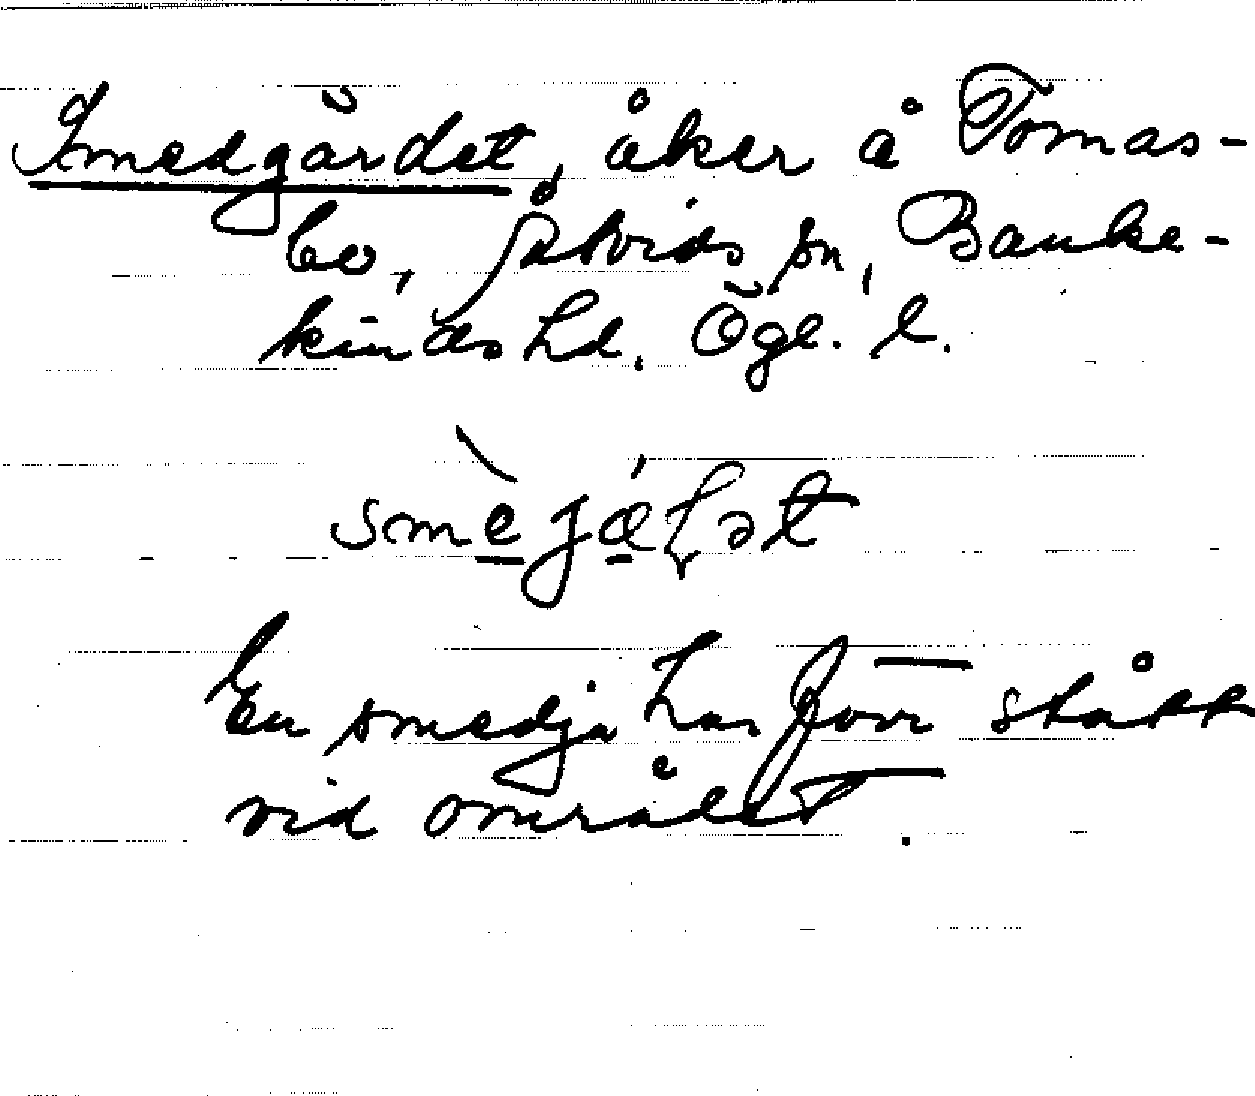 Smedgärdet, åker å Tomas-
bo, Åtvids sn, Banke-
kinds hd. Ögl. l.
En smedja har förr stått
vid området.